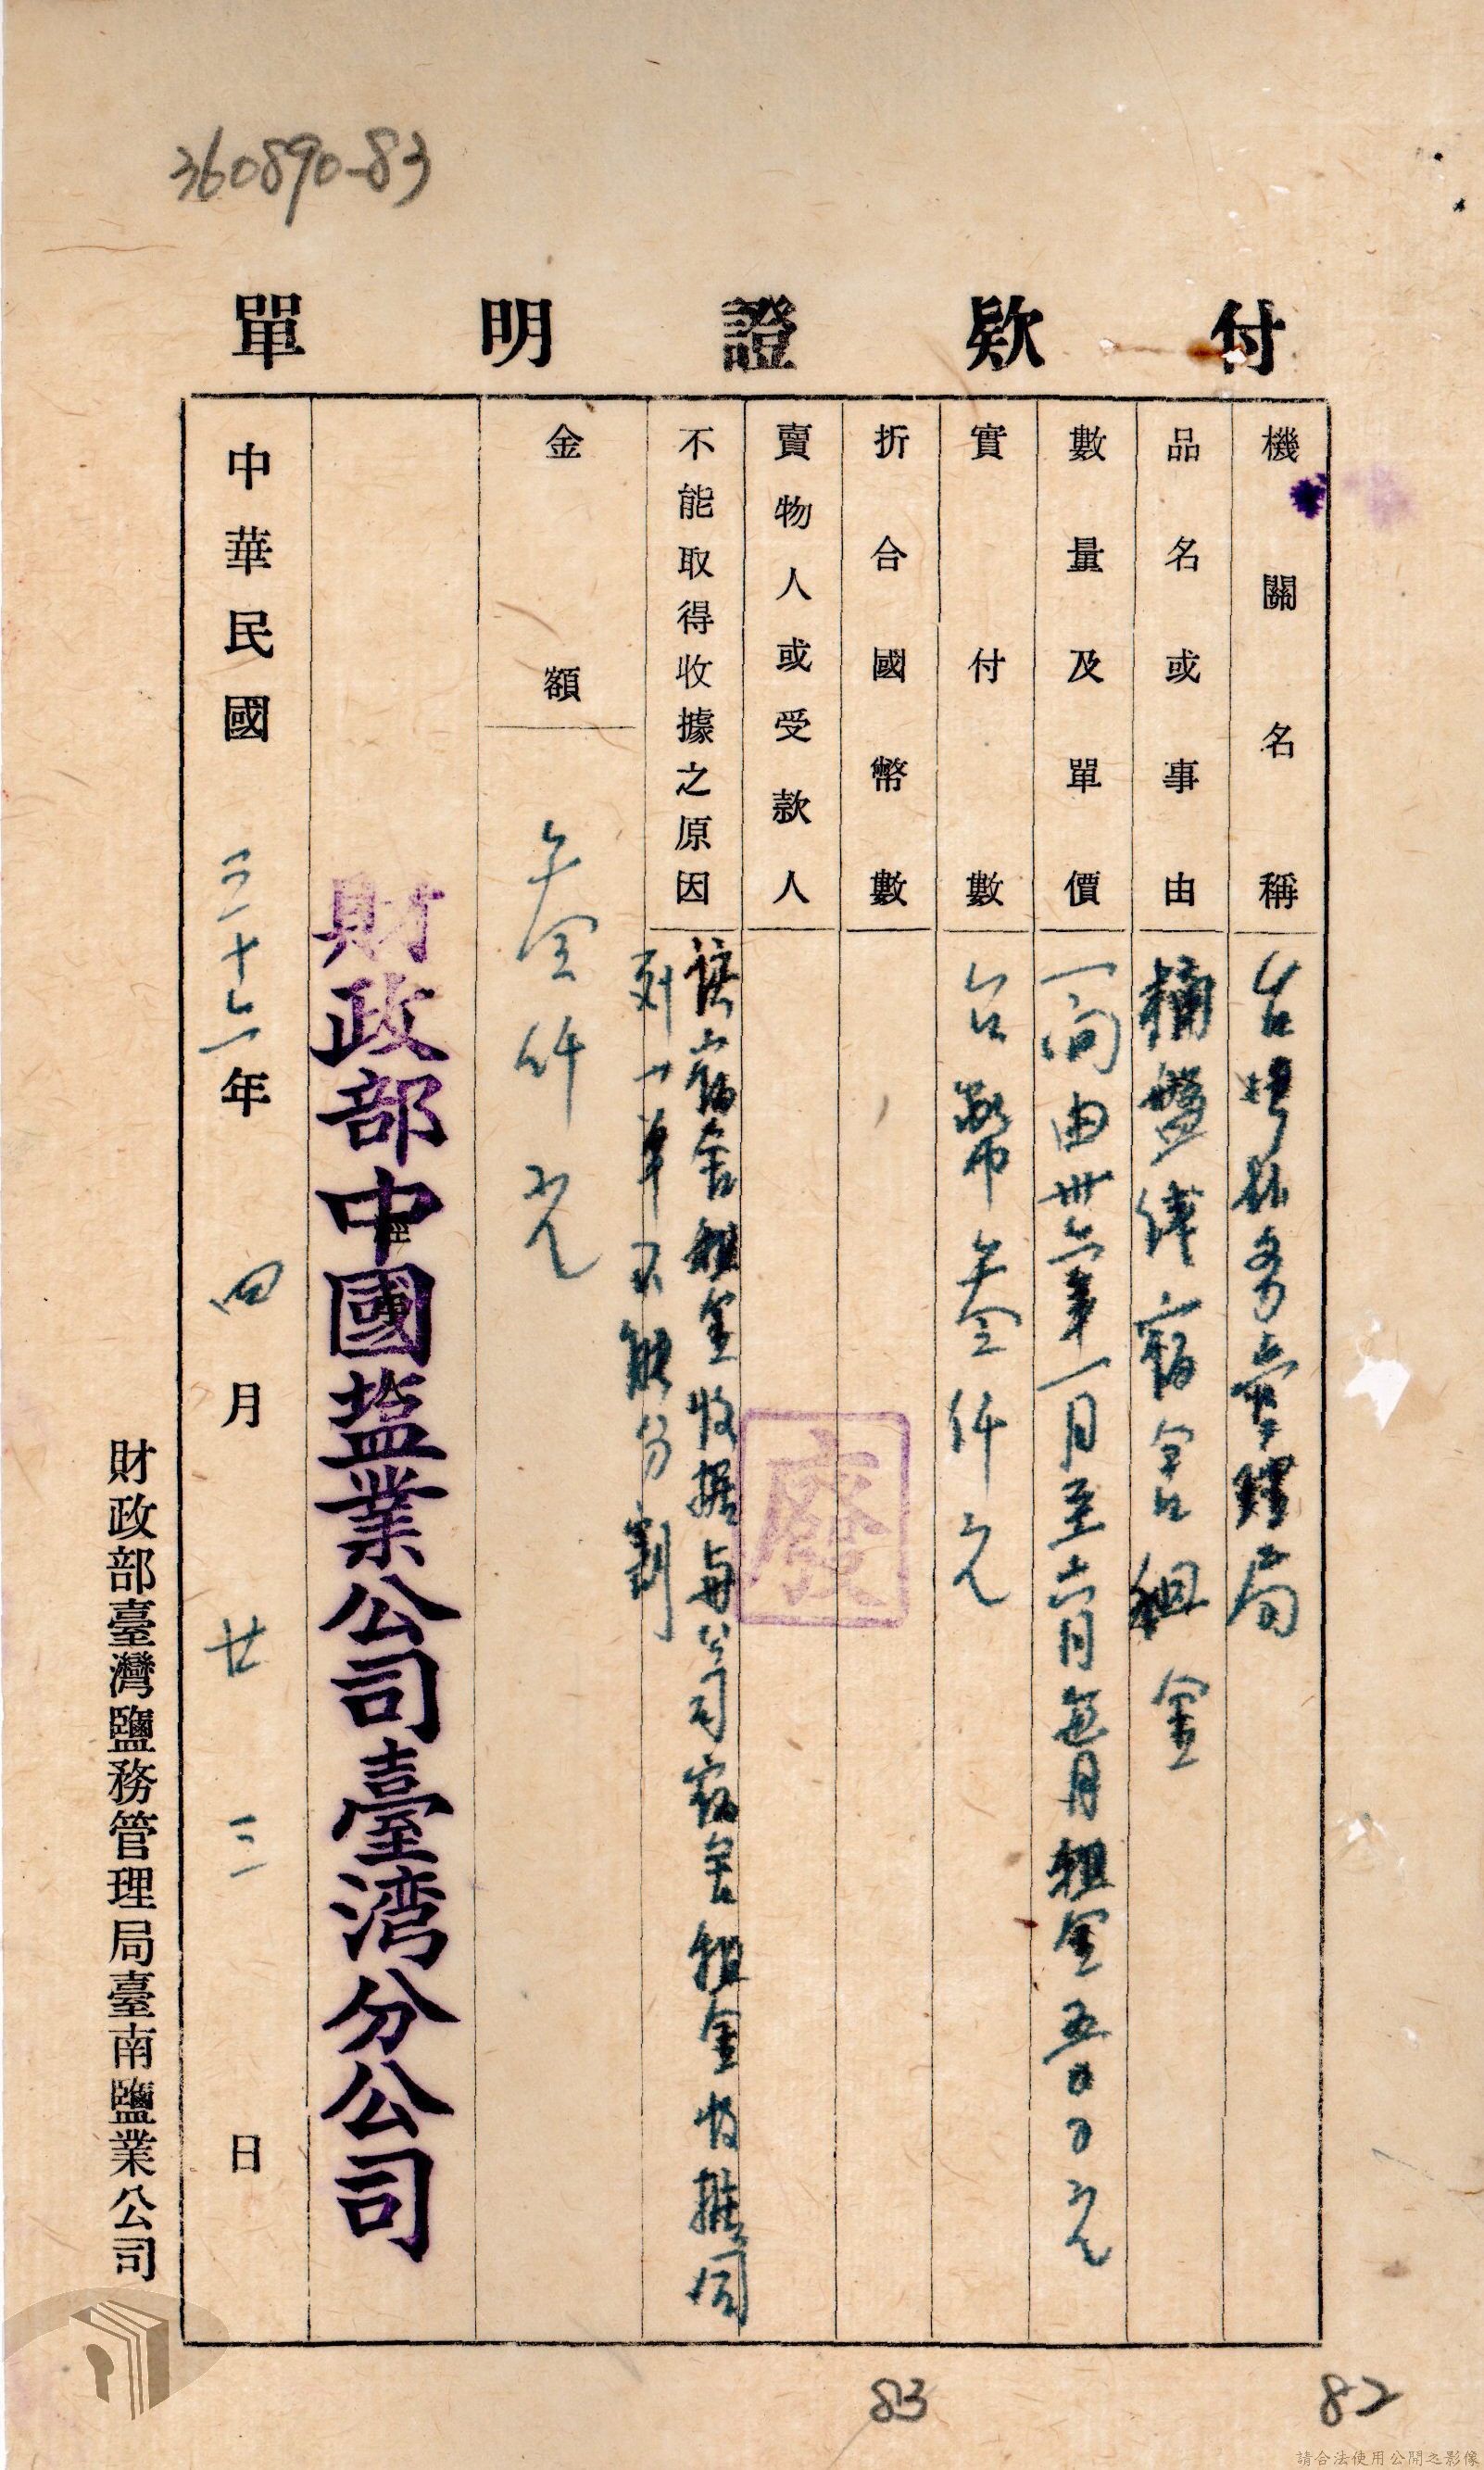 360890-83
付欵證明單
機關名稱
台灣鹽務管理局
品名或事由
宿舍租金
數量及單價
一間由卅六年一月至六月每月租金五百元
實付數
台幣叁仟元
折合國幣數
賣物人或受款人
廢
不能取得收據之原因
該宿舍租金收据與公司宿舍租金收據同
列一單不能分割
金額
叁仟元
財政部中國盐業公司臺湾分公司
中華民國三十七年四月廿三日
財政部臺灣鹽務管理局臺南鹽業公司
83
82
請合法使用公開之影像